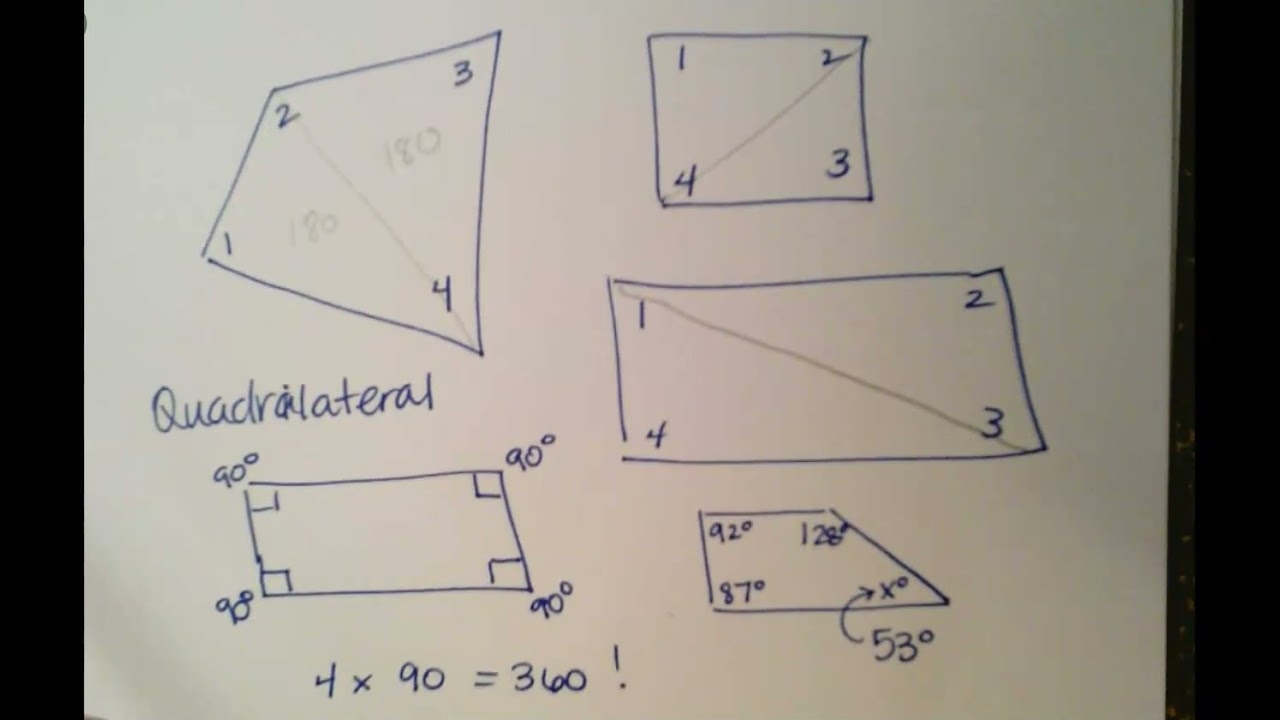 2 3
180
180
1
4
1 2
4 3
1 2
4 3
Quadrilateral
90° 90°
90° 90°
4 x 90 = 360 !
92° 128°
87° x°
53°